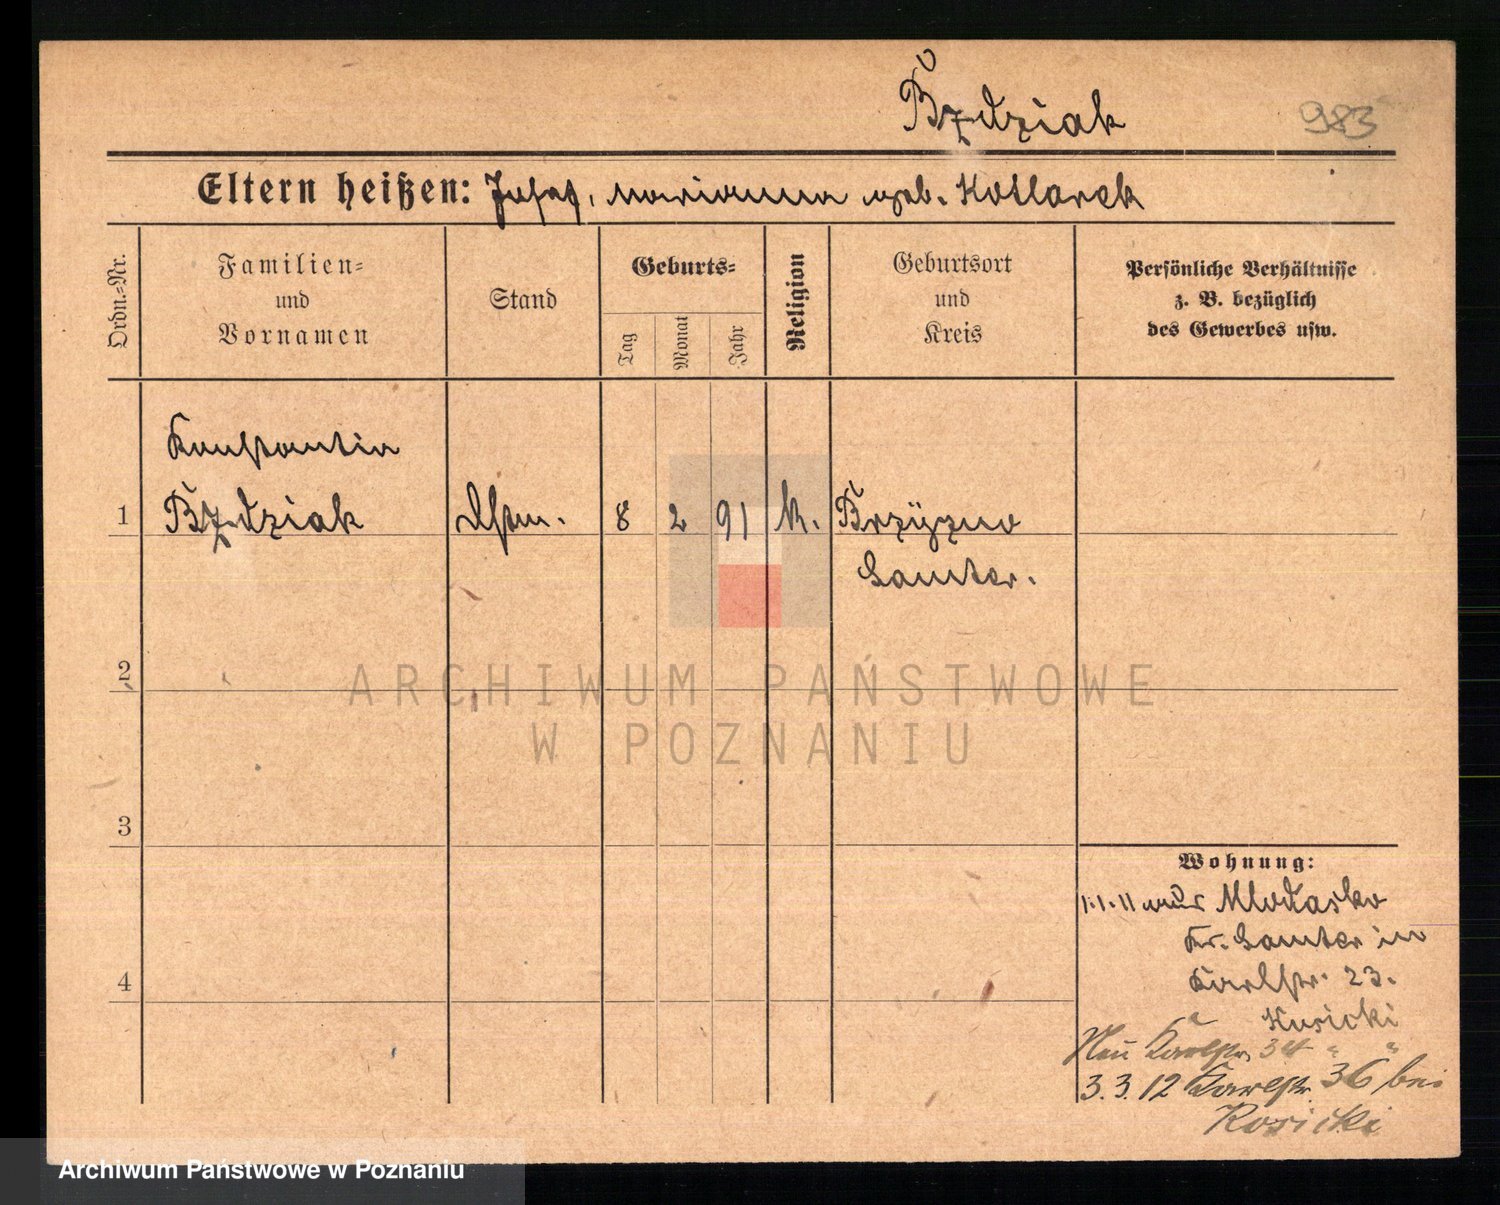 Bzdziak 983
Eltern heißen: Josef, Marianna geb. Kotlarek
Ordn.-Nr.
Familien-
und
Vornamen
Stand
Geburts-
Tag
Monat
Jahr
Religion
Geburtsort
und
Kreis
Persönliche Verhältnisse
z. B. bezüglich
des Gewerbes usw.
Konstantin
1 Bzdziak 8 2 91 k.
Samter.
2
3
4
Wohnung:
1.1.11 aus Mlodasko
Kr. Samter in
Karlstr. 23.
Kusicki
Neu Karlstr. 34 " "
3.3.12 Karlstr. 36 bei
Rosicki
ARCHIWUM PAŃSTWOWE
W POZNANIU
Archiwum Państwowe w Poznaniu